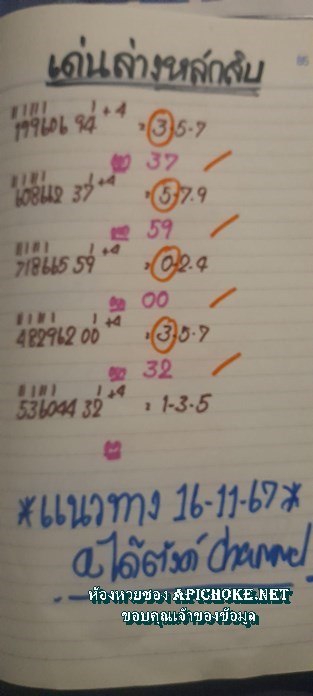 เด่นล่างหลักสิบ
199606 94 +4 = 3-5-7
37
608642 37 +4 = 5-7-9
59
718665 59 +4 = 0-2-4
00
482962 00 +4 = 3-5-7
32
536044 32 +4 = 1-3-5
*แนวทาง 16-11-67*
channel
ห้องหวยซอง APICHOKE.NET
ขอบคุณเจ้าของข้อมูล